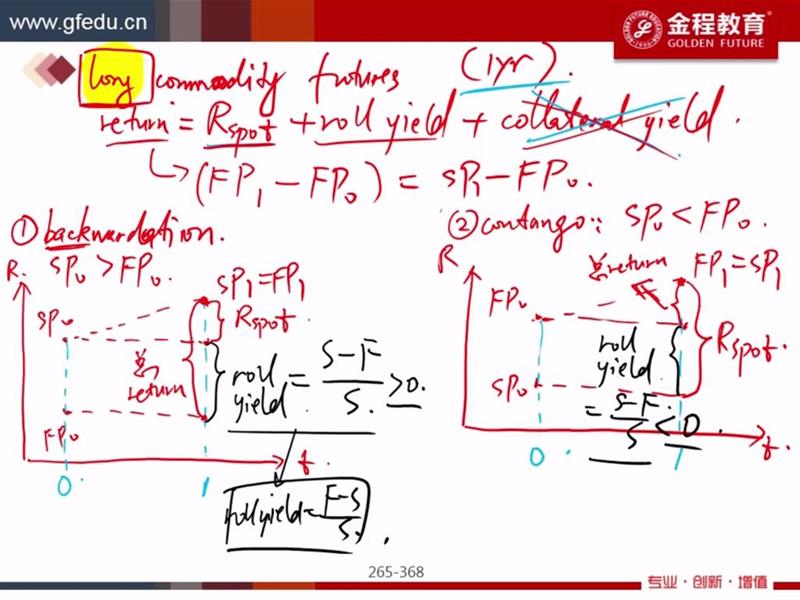 www.gfedu.cn
金程教育
GOLDEN FUTURE
long commodity futures (1yr).
return = Rspot + roll yield + collateral yield.
↳ (FP₁ - FP₀) = SP₁ - FP₀.
① backwardation.
SP₀ > FP₀.
R.
SP₁ = FP₁
SP₀
Rspot.
总 return
roll yield = S-F/S. > 0.
FP₀
t.
0.
1
roll yield = F-S/S.
② contango: SP₀ < FP₀.
R
总 return
FP₁ = SP₁
FP₀
roll yield
Rspot.
SP₀
= S-F./S < 0.
t.
0.
1
265-368
专业·创新·增值